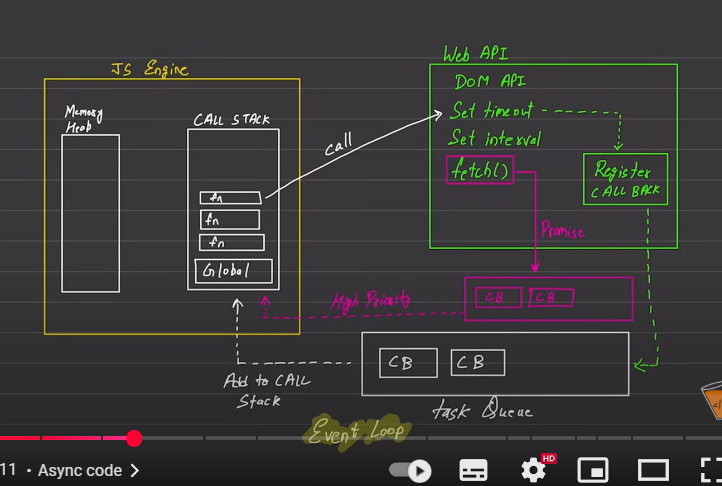 JS Engine
Memory
Heab
CALL STACK
fn
fn
fn
Global
call
Web API
DOM API
Set timeout
Set interval
fetch()
Register
CALL BACK
Promise
High Priority
CB
CB
CB
CB
Add to CALL
Stack
task Queue
Event Loop
11 • Async code >
HD